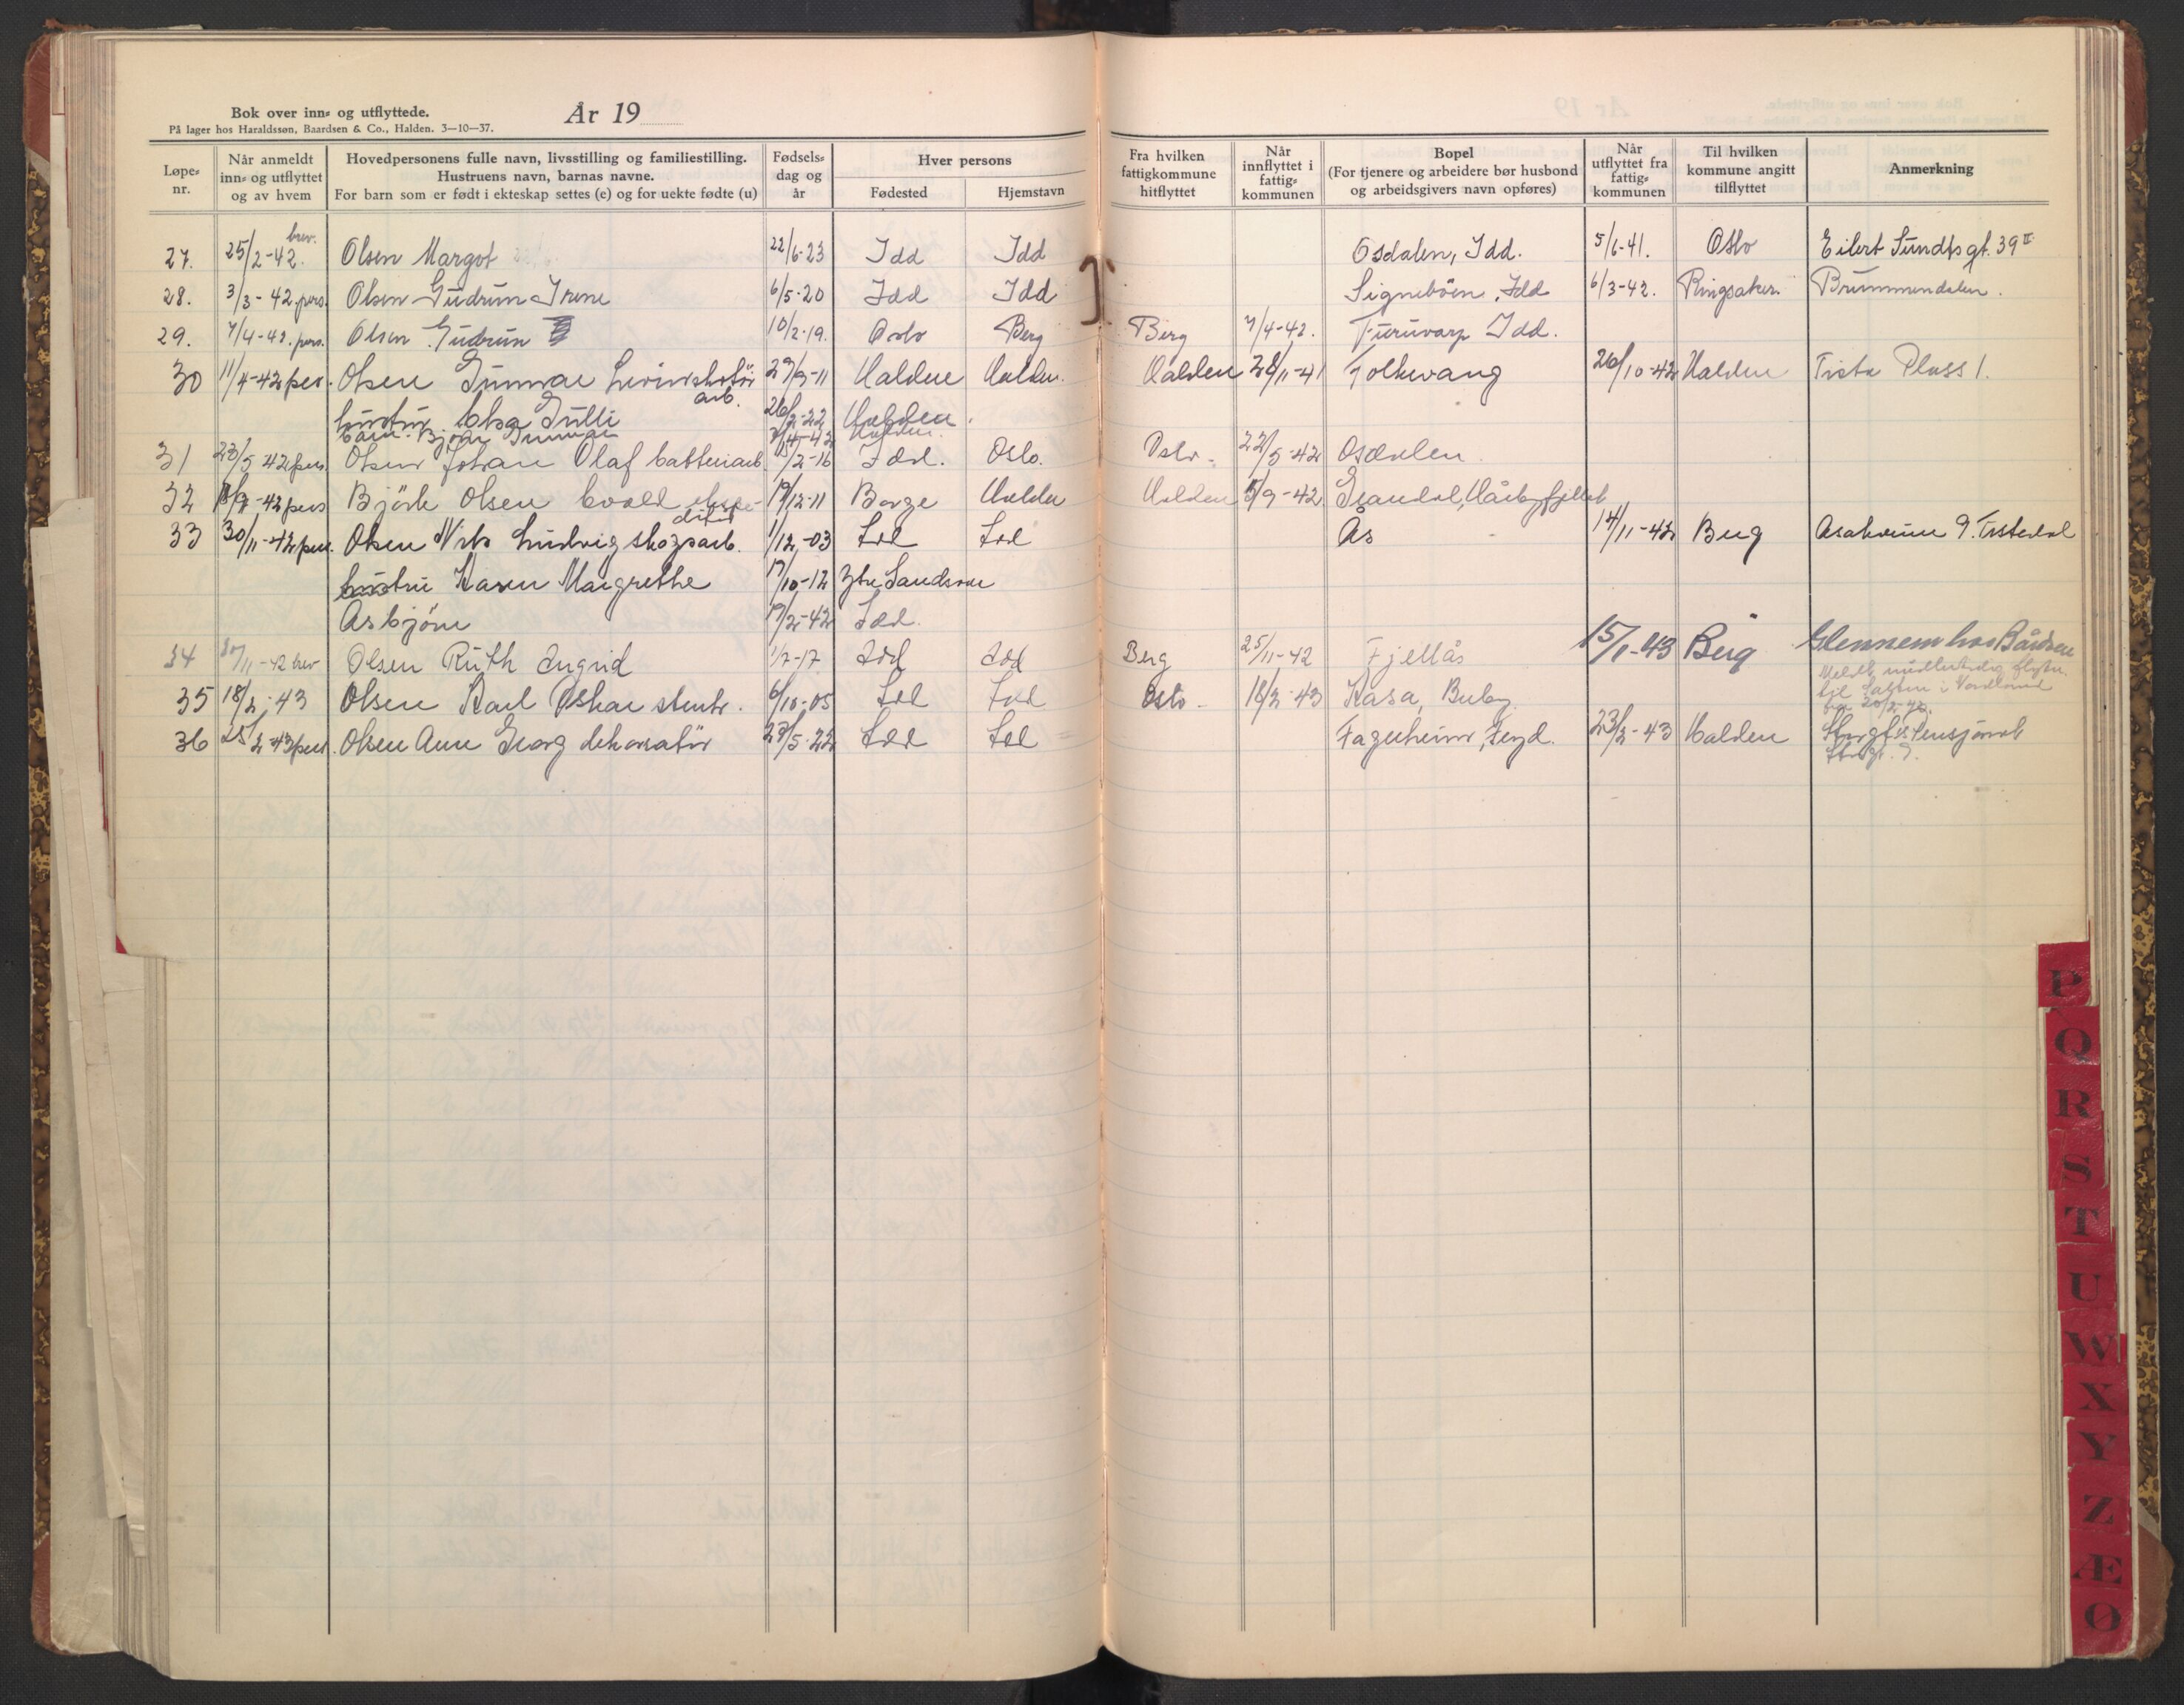 Bok over inn- og utflyttede.
På lager hos Haraldssøn, Baardsen & Co., Halden. 3—10—37.
År 19
Løpe-nr. Når anmeldt inn- og utflyttet og av hvem Hovedpersonens fulle navn, livsstilling og familiestilling. Hustruens navn, barnas navne. For barn som er født i ekteskap settes (e) og for uekte fødte (u) Fødsels-dag og år Hver persons Fødested Hjemstavn Fra hvilken fattigkommune hitflyttet Når innflyttet i fattig-kommunen Bopel (For tjenere og arbeidere bør husbond og arbeidsgivers navn opføres) Når utflyttet fra fattig-kommunen Til hvilken kommune angitt tilflyttet Anmerkning
27. 25/2-42. brev. Olsen Margot 22/6-23 Idd Idd Osdalen, Idd. 5/6-41. Oslo Eilert Sundts gt. 39 II
28. 3/3-42. pers. Olsen Gudrun Irene 6/5-20 Idd Idd Signebøen, Idd 6/3-42. Ringsaker. Brummendalen.
29. 7/4-42. pers. Olsen Gudrun 10/2-19. Oslo Berg Berg 7/4-42. Furuvarp Idd.
30 11/4-42 per. Olsen Gunnar arb. 29/9-11 Halden Halden. Halden 28/11-41 Folkvang 26/10-42 Halden Tista Plass 1.
hustru Elsa Gulli 26/2-22 Halden.
barn Bjørn Gunnar 4-42 Halden.
31 23/5 42 pers Olsen Johan Olaf batteriarb. 15/2-16 Idd. Oslo. Oslo - 22/5-42 Osdalen
32 -42 pers Bjørk Olsen Evald 19/12-11 Borge Halden Halden 5/9-42 Grandal,
33 30/11-42 per. Olsen Nils Ludvig skogsarb. 1/12-03 Idd Idd Ås 14/11-42 Berg Asakveien 9. Tistedal
hustru Karen Margrethe 17/10-12 Ytre Sandsvær
Asbjørn 17/2-42 Idd.
34 30/11-42 brev Olsen Ruth Ingrid 1/7-17 Idd Idd Berg 25/11-42 Fjellås 15/1-43 Berg Glennem hos Bårdsen
35 18/2-43 Olsen Karl Oskar stenh. 6/10-05 Idd Idd Oslo - 18/2-43 Kasa, Buby. Meldt midlertidig flyttet til Salten i Nordland
36 25/2-43 pers. Olsen Arne Georg dekoratør 27/5-22 Idd Idd Fagerheim, 23/2-43 Halden